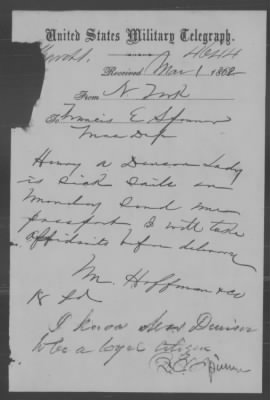 United States Military Telegraph.
4644
Received Mar 1 1862
From N York
To Francis E Spinner
Henry a Denison Lady
is sick Sails on
Monday Send her
passport I will take
affidavits before delivery
M. Hoffman &co
18 Pd
I know Denison
to be a loyal citizen
F. E. Spinner